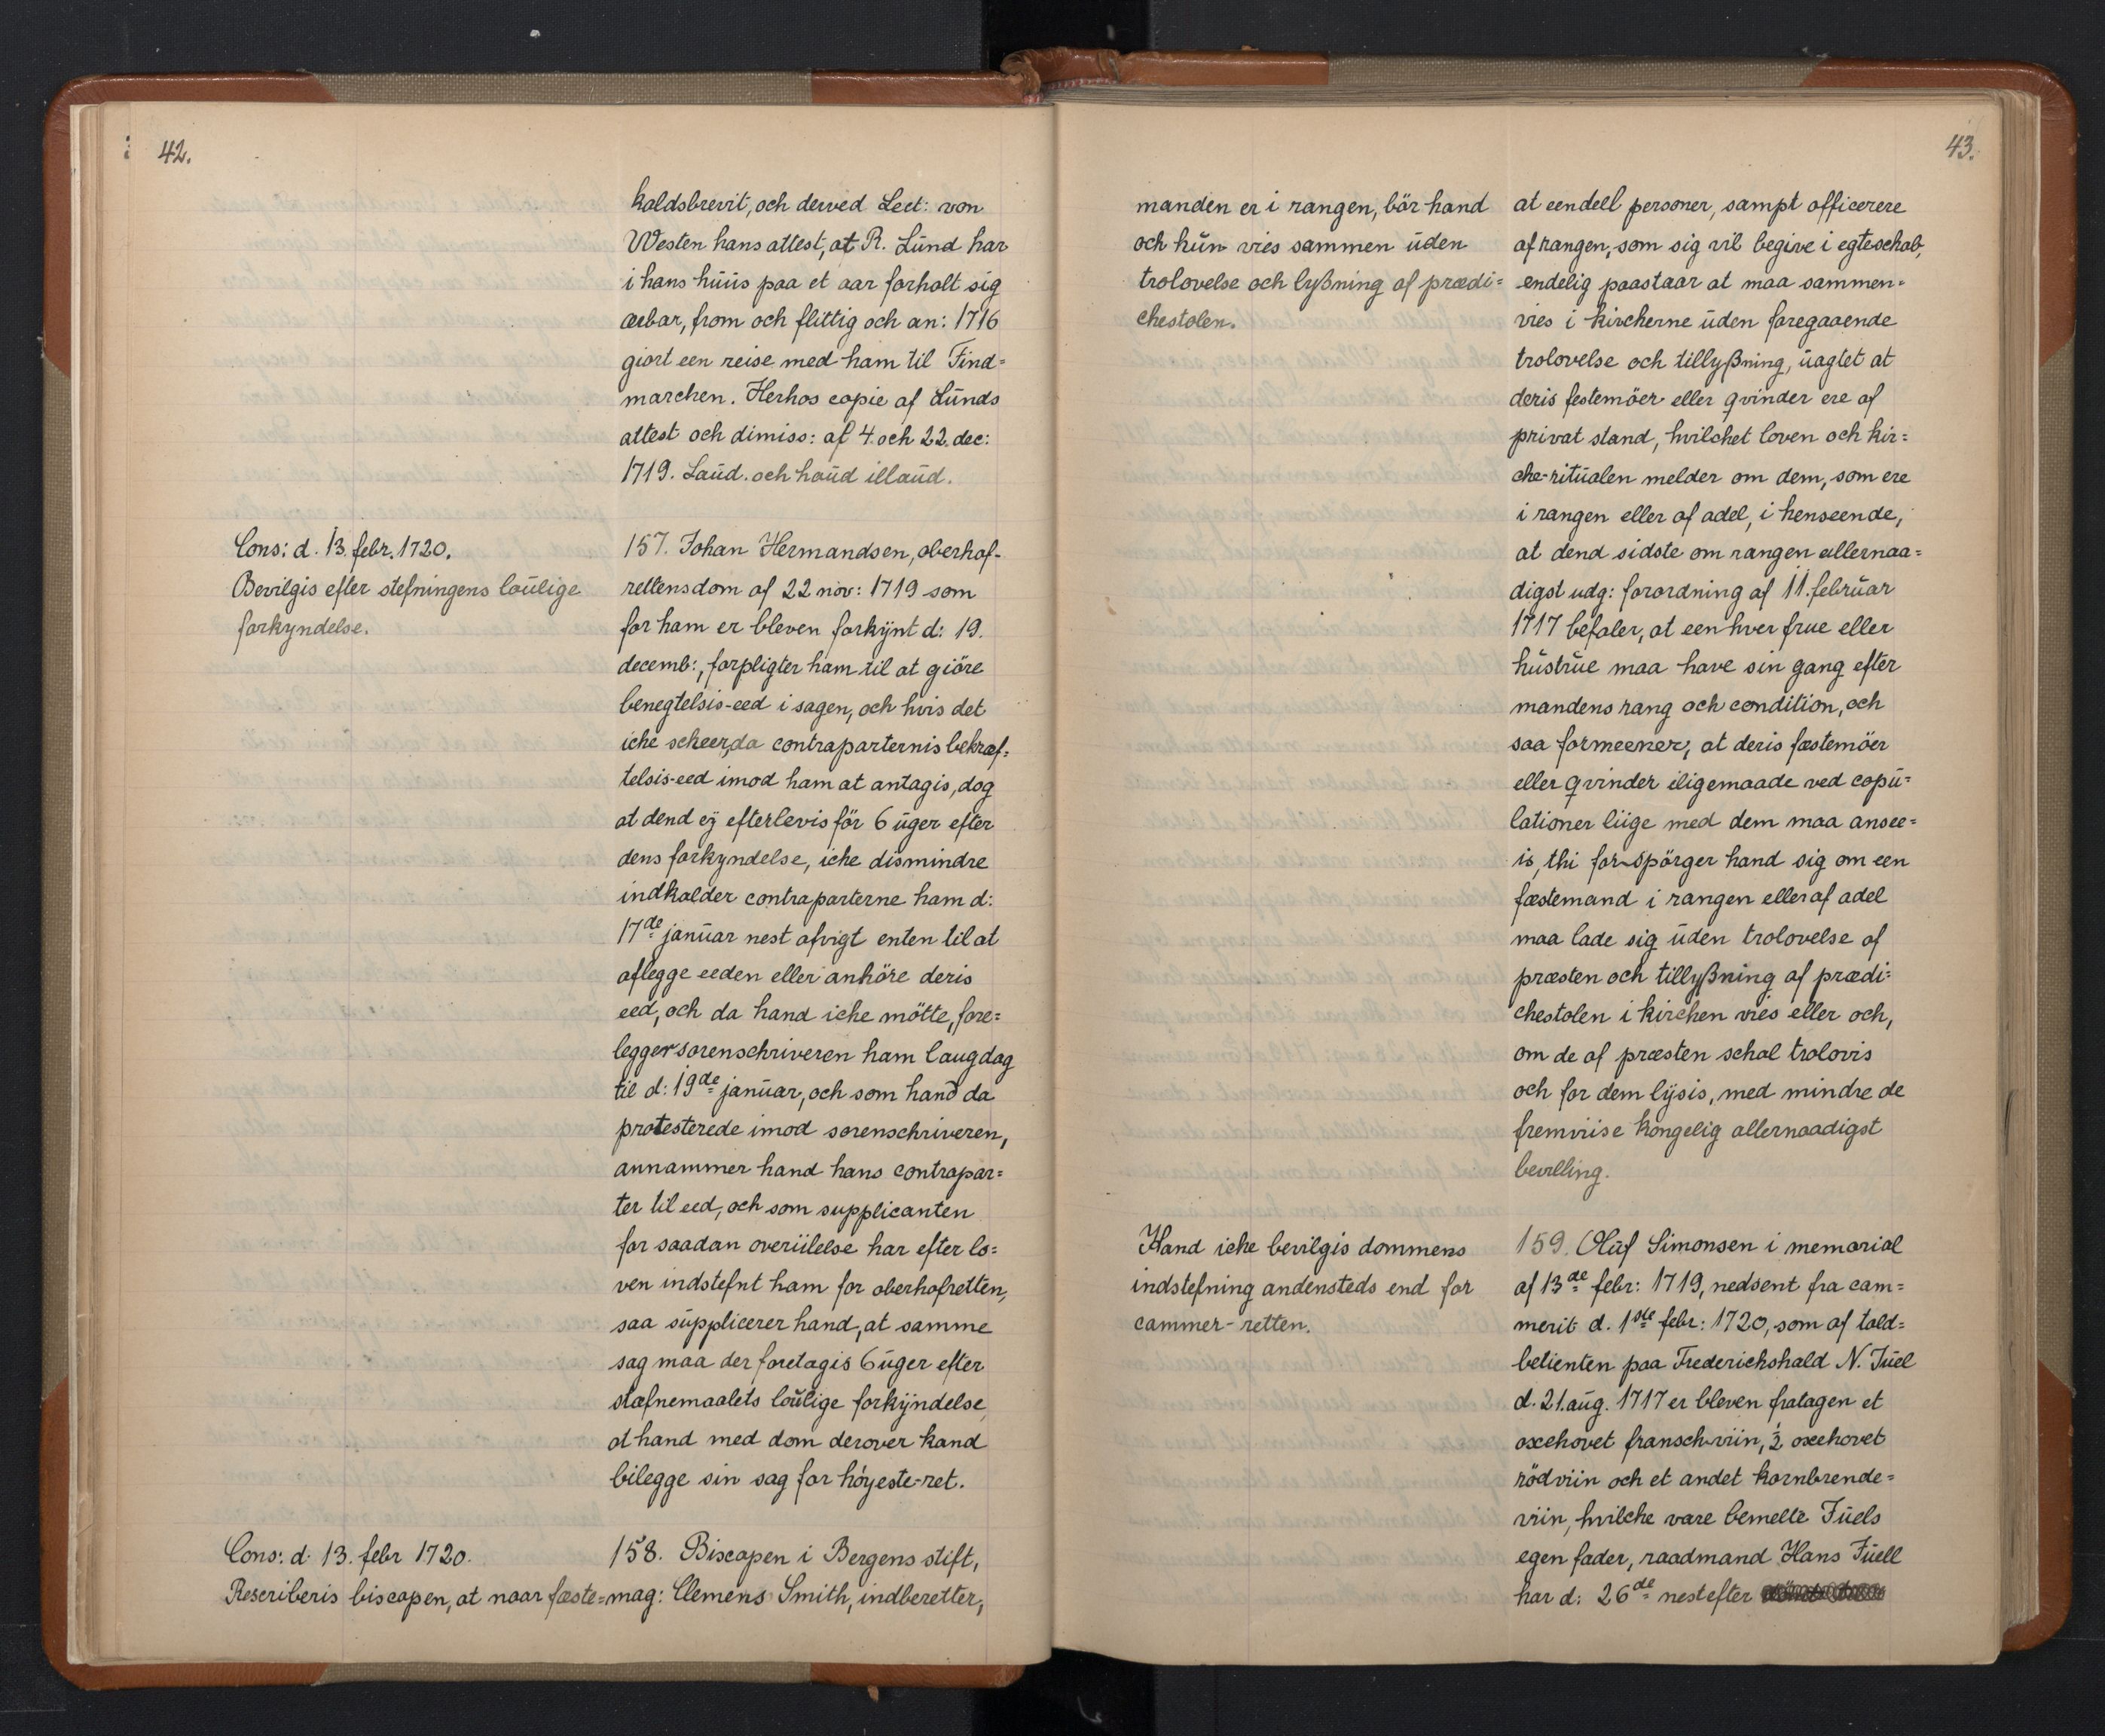 42.
kaldsbrevit, och derved Lect: von
Westen hans attest, at R. Lünd har
i hans hüüs paa et aar forholt sig
ærbar, from och flittig och an: 1716
giort een reise med ham til Find=
marchen. Herhos copie af Lünds
attest och dimiss: af 4. och 22. dec:
1719. Laüd. och haüd illaüd.
Cons: d. 13. febr. 1720.
Bevilgis efter stefningens loülige
forkyndelse.
157. Johan Hermandsen, oberhof-
rettens dom af 22 nov: 1719 som
for ham er bleven forkÿnt d: 19.
decemb:, forpligter ham til at giöre
benegtelsis-eed i sagen, och hvis det
iche scheer, da contraparternis bekræf=
telsis-eed imod ham at antagis, dog
at dend eÿ efterlevis för 6 üger efter
dens forkyndelse, iche dismindre
indkalder contraparterne ham d:
17de janüar nest afvigt enten til at
aflegge eeden eller anhöre deris
eed, och da hand iche mötte, fore=
legger sorenschriveren ham laugdag
til d: 19de janüar, och som hand da
protesterede imod sorenschriveren,
annammer hand hans contrapar=
ter til eed, och som supplicanten
for saadan overiilelse har efter lo=
ven indstefnt ham for oberhofretten,
saa süpplicerer hand, at samme
sag maa der foretagis 6 üger efter
stæfnemaalets loülige forkÿndelse,
at hand med dom derover kand
bilegge sin sag for höyeste-ret.
Cons: d. 13. febr 1720.
Rescriberis biscopen, at naar fæste=
158. Biscopen i Bergens stift,
mag: Clemens Smith, indberetter,
43.
manden er i rangen, bör hand
och hün vies sammen üden
trolovelse och lyßning af prædi=
chestolen.
at eendell personer, sampt officerere
af rangen, som sig vil begive i egteschab,
endelig paastaar at maa sammen=
vies i kircherne üden foregaaende
trolovelse och tillyßning, üagtet at
deris festemöer eller qvinder ere af
privat stand, hvilchet loven och kir=
che-ritüalen melder om dem, som ere
i rangen eller af adel, i henseende,
at dend sidste om rangen allernaa=
digst udg: forordning af 11. februar
1717 befaler, at een hver frue eller
hüstrüe maa have sin gang efter
mandens rang och condition, och
saa formeener, at deris fæstemöer
eller qvinder iligemaade ved copü=
lationer liige med dem maa ansee=
is, thi for-spörger hand sig om een
fæstemand i rangen eller af adel
maa lade sig üden trolovelse af
præsten och tillyßning af prædi=
chestolen i kirchen vies eller och,
om de af præsten schal trolovis
och for dem lÿsis, med mindre de
fremviise kongelig allernaadigst
bevilling.
Hand iche bevilgis dommens
indstefning andensteds end for
cammer-retten.
159. Olüf Simonsen i memorial
af 13de febr: 1719, nedsent fra cam=
merit d. 1ste febr: 1720, som af told=
betienten paa Frederichshald N. Jüel
d. 21. aüg. 1717 er bleven fratagen et
oxehovet fransch viin, ½ oxehovet
rödviin och et andet kornbrende=
viin, hvilche vare bemelte Jüels
egen fader, raadmand Hans Jüell
har d: 26de nest efter